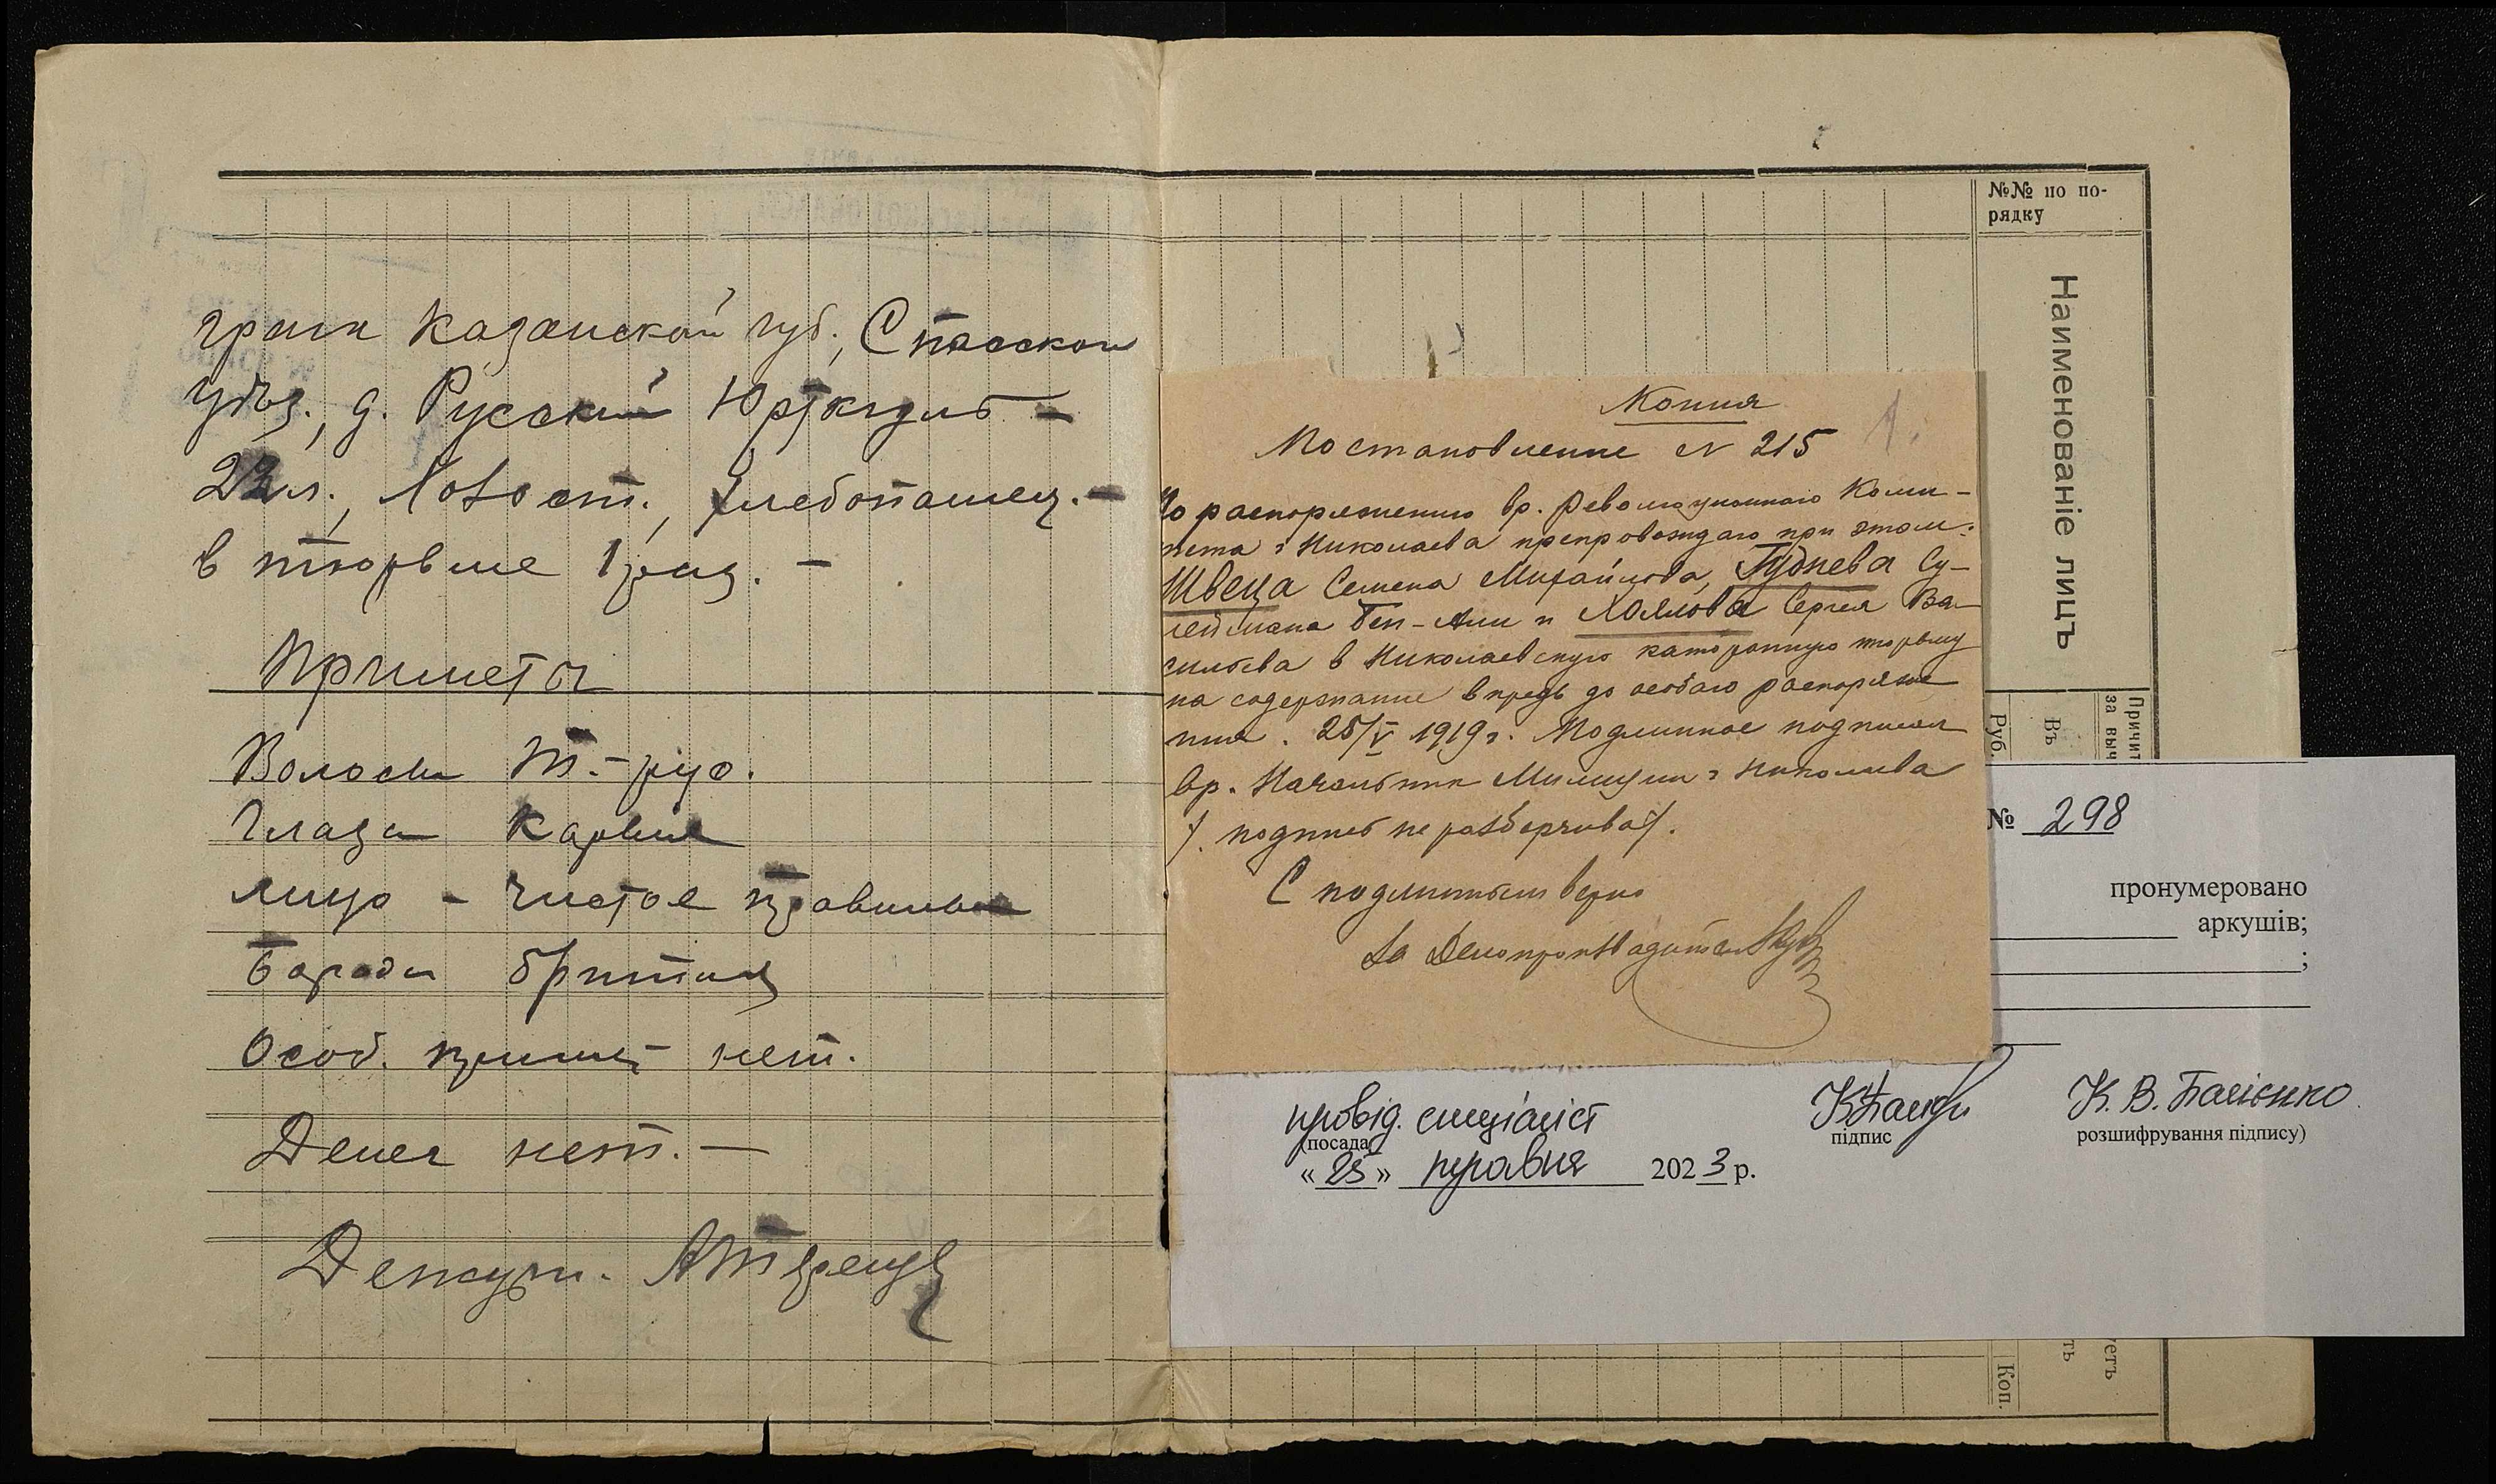 граж Казанской губ., Спасской
уѣз., д. Русский Юрткуль —
22 л., холост., хлебопашец. —
в тюрьме 1 раз. —
Приметы
Волосы т.-рус.
Глаза карие
лицо - чистое правильное
борода бритая
Особ. примет нет.
Денег нет. —
Дежурн.
№№ по по-
рядку
Наименованіе лицъ
Причит
за выч
Въ
Руб.
Копия
1.
Постановление № 215
По распоряжению Вр. Революционнаго Коми-
тета г Николаева препровождаю при этом:
Швеца Семена Михайлова, Губнева Су-
леймана Бен-Али и Холлова Сергея Ва-
сильева в Николаевскую каторжную тюрьму
на содержание впредь до особаго распоряже
ния. 25/V 1919 г. Подлинное подписал
Вр. Начальник Милиции г Николаева
/. подпись не разборчива/.
С подлинным верно
За Делопроизводителя
№ 298
пронумеровано
аркушів;
;
провід. спеціаліст
К. В. Балієнко
(посада
підпис
розшифрування підпису)
« 25 » травня 2023 р.
ть
етъ
Коп.